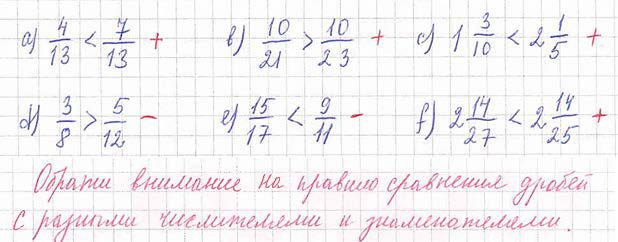 a) 4/13 < 7/13 + b) 10/21 > 10/23 + c) 1 3/10 < 2 1/5 +
d) 3/8 > 5/12 − e) 15/17 < 9/11 − f) 2 14/27 < 2 14/25 +
Обрати внимание на правило сравнения дробей
с разными числителями и знаменателями.